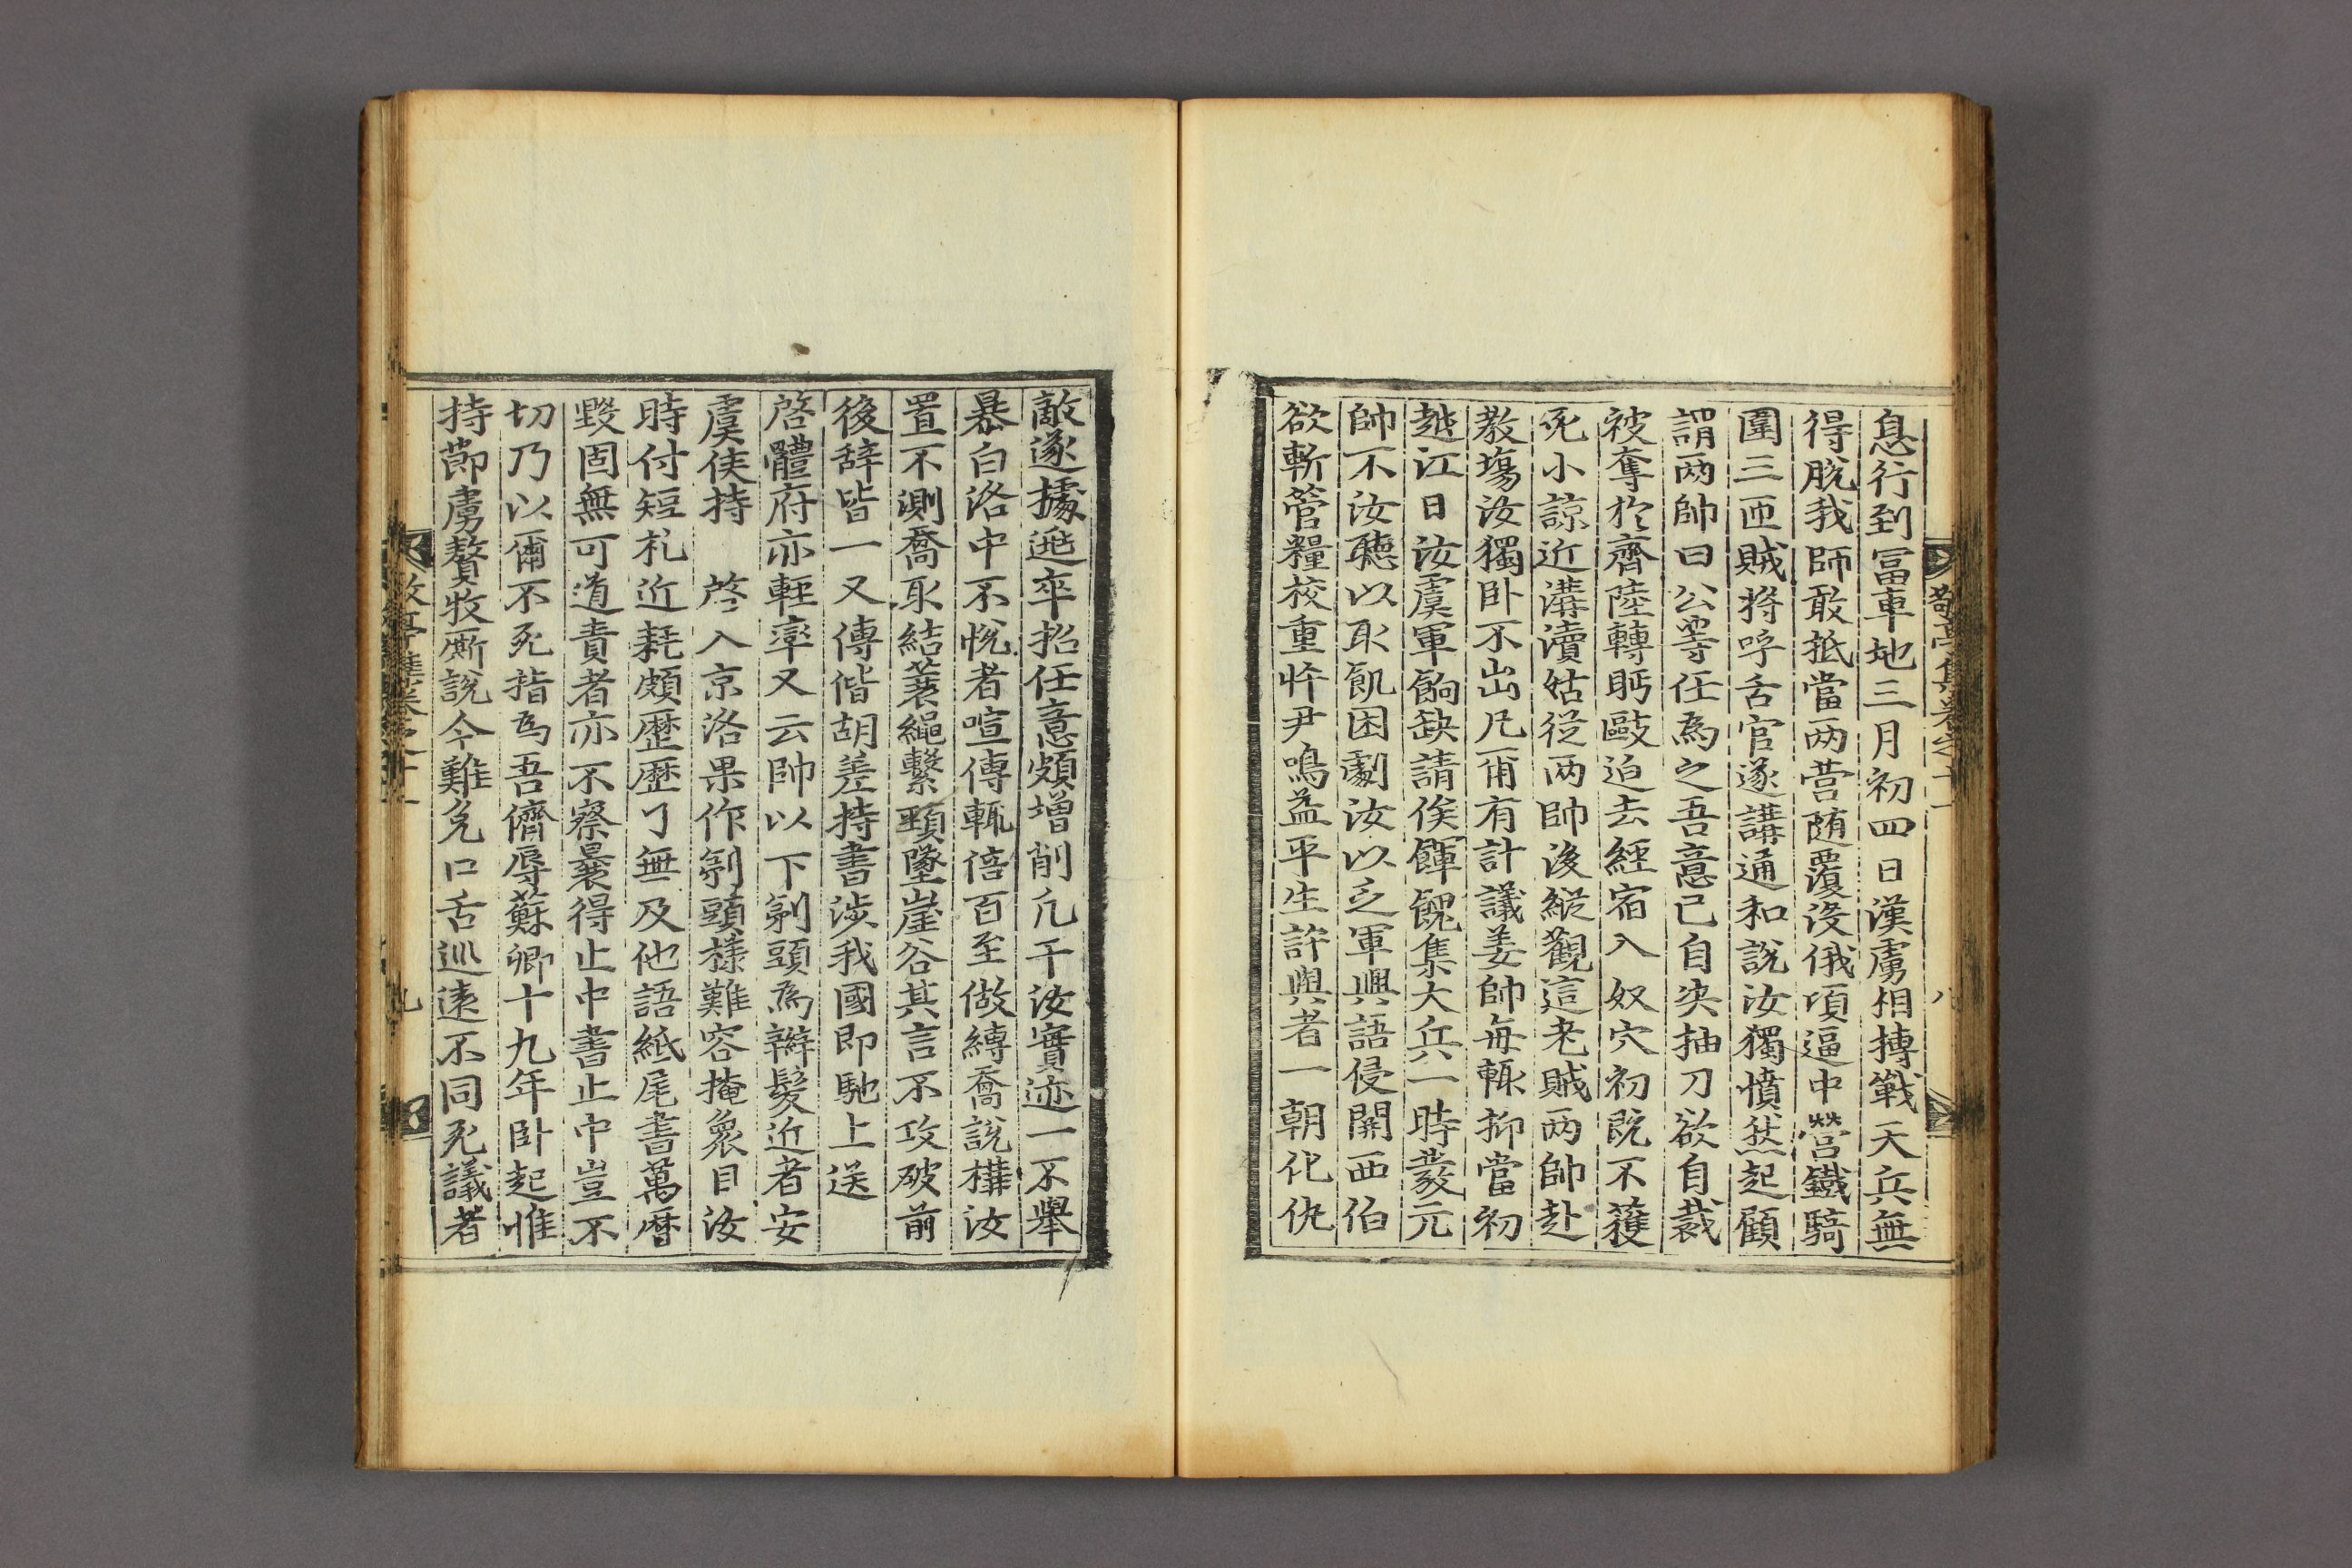 敬亭集卷之十一
八
息行到冨車地三月初四日漢虜相摶戰天兵無
得脫我師敢抵當两营随覆沒俄頃逼中營鐵騎
圍三匝賊將呼舌官遂講通和說汝獨憤然起顧
謂两帥曰公等任爲之吾意已自决抽刀欲自裁
被奪於齊陸轉眄敺迫去經宿入奴穴初旣不蒦
死小諒近溝瀆姑從两帥後縱觀這老賊两帥赴
教塲汝獨卧不出凡有計議姜帥每輒抑當初
越江日汝虞軍餉缺請俟餫餽集大兵一時發元
帥不汝聽以取飢困劇汝以乏軍興語侵關西伯
欲斬管糧校重忤尹鳴益平生許與者一朝化仇
敵遂據逃卒招任意頗增削凡干汝實迹一不擧
暴白洛中不悅者喧傳輒倍百至做縳喬說橫汝
置不測喬取結蓑繩繫頸墜崖谷其言不攻破前
後辞皆一又傳偕胡差持書涉我國即馳上送
啓體府亦輕率又云帥以下剃頭爲辮髮近者安
虞侯持 啓入京洛果作剃頭樣難容掩衆目汝
時付短札近耗頗歷歷了無及他語紙尾書萬曆
毀固無可道責者亦不察曩得止中書止中豈不
切乃以爾不死指爲吾儕辱蘇卿十九年卧起惟
持節虜贅牧厮說今難免口舌巡遠不同死議者
敬亭集卷之十一
九